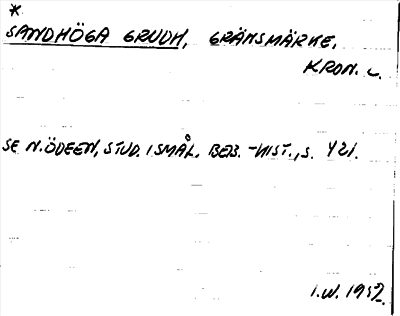 *
SANDHÖGA GRUDH, GRÄNSMÄRKE.
KRON. L.
SE N. ÖDEEN, STUD. I SMÅL. BEB.-HIST., S. 421.
I.W. 1952.